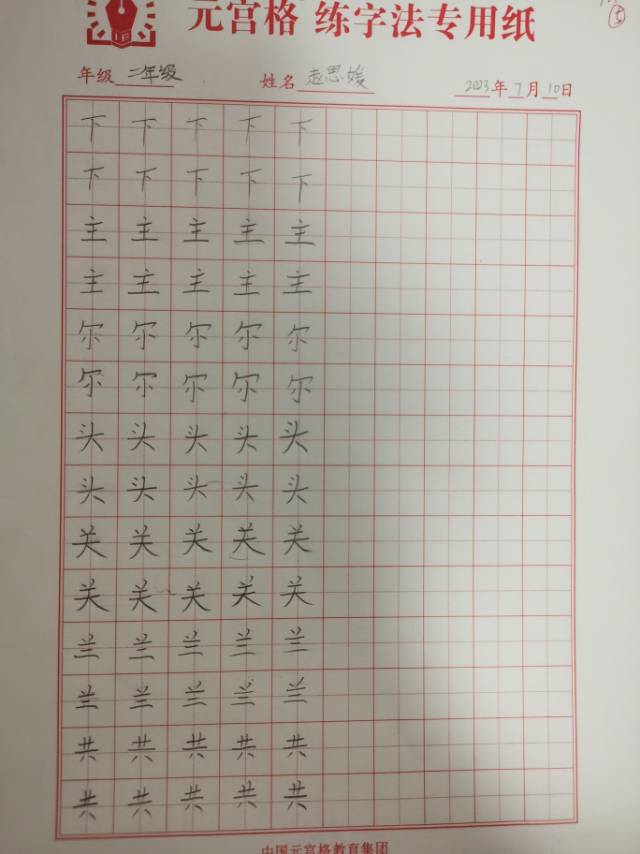 元宫格 练字法专用纸
年级 二年级 姓名 赵思媛 2023年7月10日
下 下 下 下 下
下 下 下 下 下
主 主 主 主 主
主 主 主 主 主
尔 尔 尔 尔 尔
尔 尔 尔 尔 尔
头 头 头 头 头
头 头 头 头 头
关 关 关 关 关
关 关 关 关 关
兰 兰 兰 兰 兰
兰 兰 兰 兰 兰
共 共 共 共 共
共 共 共 共 共
中国元宫格教育集团